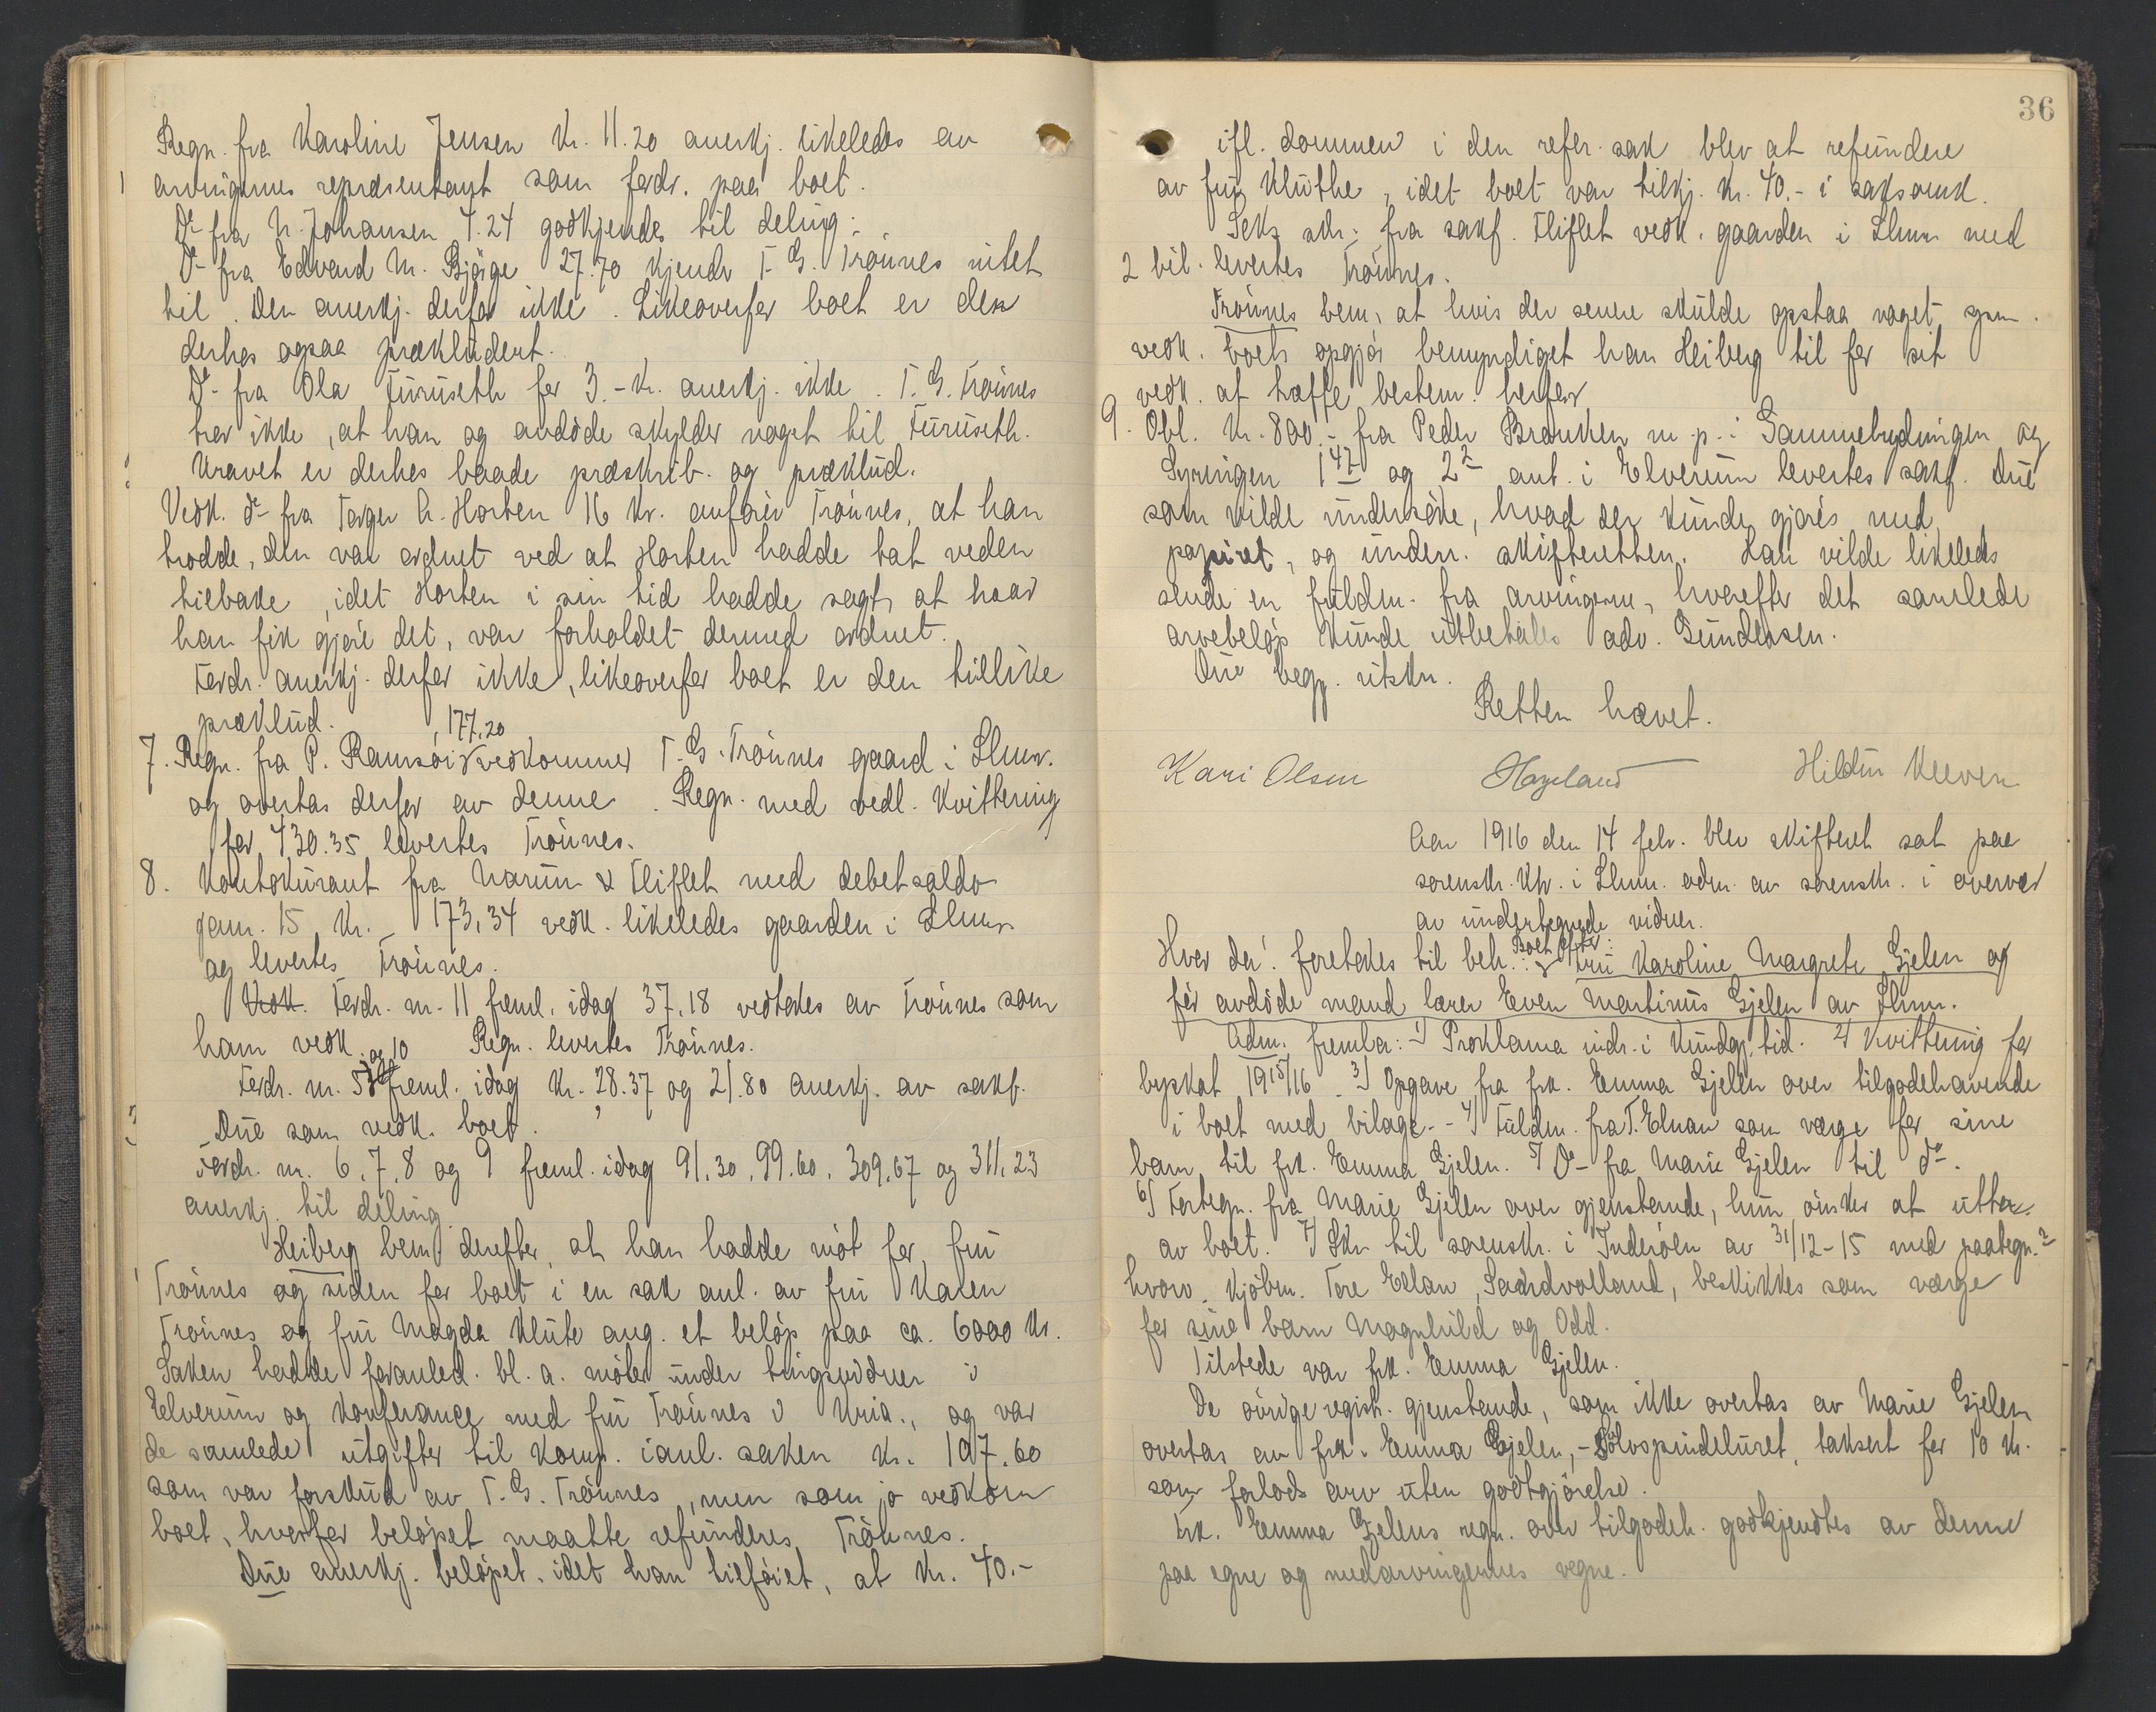 Regn. fra Karoline Jensen Kr. 11.20 anerkj. likeledes av
arvingernes repræsentant som fordr. paa boet.
Do fra N. Johansen 4.24 godkjendes til deling.
Do fra Edvard M. Bjørge 27.70 kjender T. G. Trønnes intet
til. Den anerkj. derfor ikke. Likeoverfor boet er den
derhos ogsaa prækludert.
Do fra Ola Furuseth for 3.- kr. anerkj. ikke. T. G. Trønnes
tror ikke, at han og avdøde skylder noget til Furuseth.
Kravet er derhos baade præskrib. og præklud.
Vedk. do fra Torger Horten 16 kr. anfører Trønnes, at han
trodde, den var ordnet ved at Horten hadde tat veden
tilbake, idet Horten i sin tid hadde sagt, at hvad
han fik gjøre det, var forholdet dermed ordnet.
Fordr. anerkj. derfor ikke, likeoverfor boet er den tillike
præklud.
177,20
7. Regn. fra P. Ramsøi vedkommer T. G. Trønnes gaard i Lhmr.
og overtas derfor av denne. Regn. med vedl. kvittering
for 430.35 levertes Trønnes.
8. Kontokurant fra Narum & Fliflet med debetsaldo
jan. 15 Kr. 173,34 vedk. likeledes gaarden i Lhmr
og levertes Trønnes.
Vedk. Fordr. nr. 11 freml. idag 37,18 vedtokes av Trønnes som
ham vedk. Regn. levertes Trønnes.
og 10
Fordr. nr. 5 freml. idag Kr. 28.37 og 21.80 anerkj. av sakf.
Due som vedk. boet.
Fordr. nr. 6, 7, 8 og 9 freml. idag 91.30, 99.60, 309,67 og 311,23
anerkj. til deling.
Heiberg bem. derefter, at han hadde møt for fru
Trønnes og siden for boet i en sak anl. av fru Karen
Trønnes og fru Magda Klute ang. et beløp paa ca. 6000 Kr.
Saken hadde foranled. bl. a. møter under tingsvidner i
Elverum og konferance med fru Trønnes i Kria., og var
de samlede utgifter til komp. i anl. saken Kr. 197.60
som var forskud av T. G. Trønnes, men som jo vedkom
boet, hvorfor beløpet maatte refunderes Trønnes.
Due anerkj. beløpet, idet han tilføiet, at Kr. 40.-
36
ifl. dommen i den refer. sak blev at refundere
av fru Kluthe, idet boet var tilkj. Kr. 40.- i saksomk.
Seks skr. fra sakf. Fliflet vedk. gaarden i Lhmr med
2 bil. levertes Trønnes.
Trønnes bem. at hvis der senere skulde opstaa noget spm.
vedk. boets opgjør bemyndiget han Heiberg til for sit
vedk. at træffe bestem. herfor
9. Obl. Kr. 800.- fra Peder Braaken m. p. i Sammebudningen og
og 2 ant. i Elverum levertes sakf. Due
som vilde undersøke, hvad der kunde gjøres med
papiret, og underr. skifteretten. Han vilde likeledes
sende en fuldm. fra arvingerne, hvorefter det samlede
arvebeløp kunde utbetales adv. Gundersen.
Due begj. utskr.
Retten hævet.
Kari Olsen Hageland Hildur Kleven
Aar 1916 den 14 febr. blev skifteret sat paa
sorenskr. ktr. i Lhmr. adm. av sorenskr. i overvær
av undertegnede vidner.
Boet efter:
Hvor da: foretokes til beh.: fru Karoline Margrete Gjelen og
før avdøde mand lærer Even Martinus Gjelen av Lhmr.
Adm. fremla: 1) Proklama indr. i Kundgj. tid. 2) Kvittering for
byskat 1915/16. 3) Opgave fra frk. Emma Gjelen over tilgodehavende
i boet med bilage. - 4) Fuldm. fra T. Elnan som værge for sine
barn til frk. Emma Gjelen. 5) Do fra Marie Gjelen til do.
6) Fortegn. fra Marie Gjelen over gjenstande, hun ønsker at utta
av boet. 7) Skr. til sorenskr. i Inderøen av 31/12-15 med paategn.
hvorv. kjøbm. Tore Eelan, Sandvollan, beskikkes som værge
for sine barn Magnhild og Odd.
Tilstede var frk. Emma Gjelen.
De øvrige registr. gjenstande, som ikke overtas av Marie Gjelen
overtas av frk. Emma Gjelen, - Sølvspindeluret, taksert for 10 kr.
som forlods arv uten godtgjørelse.
Frk. Emma Gjelens regn. over tilgodeh. godkjendtes av denne
paa egne og medarvingernes vegne.